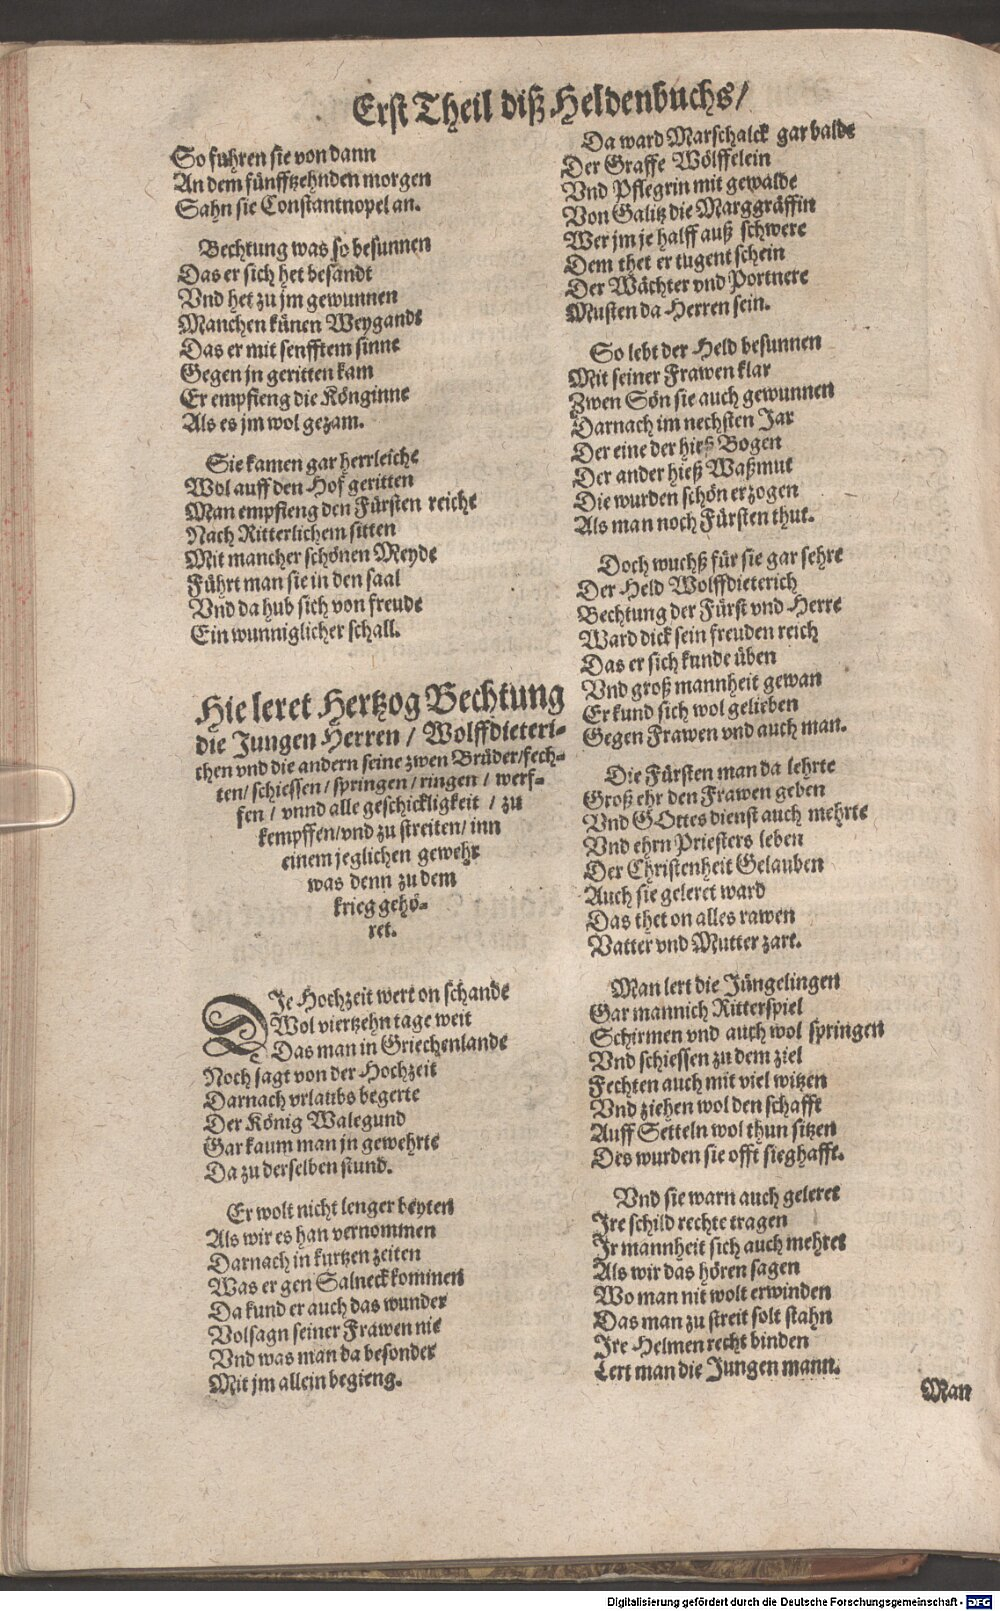 Erst Theil diß Heldenbuchs/
So fuhren sie von dann
An dem fünfftzehnden morgen
Sahn sie Constantnopel an.
Bechtung was so besunnen
Das er sich het besandt
Vnd het zu jm gewunnen
Manchen künen Weygandt
Das er mit senfftem sinne
Gegen jn geritten kam
Er empfieng die Könginne
Als es jm wol gezam.
Sie kamen gar herrleiche
Wol auff den Hof geritten
Man empfieng den Fürsten reiche
Nach Ritterlichem sitten
Mit mancher schönen Meyde
Führt man sie in den saal
Vnd da hub sich von freude
Ein wunniglicher schall.
Hie leret Hertzog Bechtung
die Jungen Herren / Wolffdieteri-
chen vnd die andern seine zwen Brüder/fech-
ten/ schiessen/ springen/ ringen / werf-
fen / vnnd alle geschickligkeit / zu
kempffen/vnd zu streiten/ inn
einem jeglichen gewehr
was denn zu dem
krieg gehö-
ret.
DIe Hochzeit wert on schande
Wol viertzehn tage weit
Das man in Griechenlande
Noch sagt von der Hochzeit
Darnach vrlaubs begerte
Der König Walegund
Gar kaum man jn gewehrte
Da zu derselben stund.
Er wolt nicht lenger beyten
Als wir es han vernommen
Darnach in kurtzen zeiten
Was er gen Salneck kommen
Da kund er auch das wunder
Volsagn seiner Frawen nie
Vnd was man da besonder
Mit jm allein begieng.
Da ward Marschalck gar balde
Der Graffe Wölffelein
Vnd Pflegrin mit gewalde
Von Galitz die Marggräffin
Wer jm je halff auß schwere
Dem thet er tugent schein
Der Wächter vnd Portnere
Musten da Herren sein.
So lebt der Held besunnen
Mit seiner Frawen klar
Zwen Sön sie auch gewunnen
Darnach im nechsten Jar
Der eine der hieß Bogen
Der ander hieß Waßmut
Die wurden schön erzogen
Als man noch Fürsten thut.
Doch wuchß für sie gar sehre
Der Held Wolffdieterich
Bechtung der Fürst vnd Herre
Ward dick sein freuden reich
Das er sich kunde üben
Vnd groß mannheit gewan
Er kund sich wol gelieben
Gegen Frawen vnd auch man.
Die Fürsten man da lehrte
Groß ehr den Frawen geben
Vnd GOttes dienst auch mehrte
Vnd ehrn Priesters leben
Der Christenheit Gelauben
Auch sie geleret ward
Das thet on alles rawen
Vatter vnd Mutter zart.
Man lert die Jüngelingen
Gar mannich Ritterspiel
Schirmen vnd auch wol springen
Vnd schiessen zu dem ziel
Fechten auch mit viel witzen
Vnd ziehen wol den schafft
Auff Setteln wol thun sitzen
Des wurden sie offt sieghafft.
Vnd sie warn auch geleret
Jre schild rechte tragen
Jr mannheit sich auch mehret
Als wir das hören sagen
Wo man nit wolt erwinden
Das man zu streit solt stahn
Jre Helmen recht binden
Lert man die Jungen mann.
Man
Digitalisierung gefördert durch die Deutsche Forschungsgemeinschaft - DFG